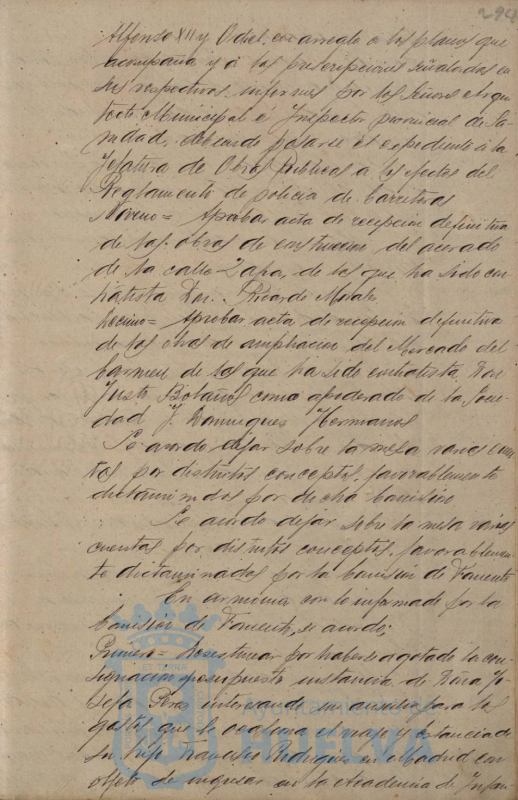 294
Alfonso XII y Odiel, con arreglo a los planos que
acompaña y á las prescripciones señaladas en
sus respectivos informes por los Señores Arqui
tecto Municipal é Inspector provincial de Sa-
nidad, debiendo pasarse el expediente á la
Jefatura de Obras Publicas a los efectos del
Reglamento de policia de carreteras
Noveno = Aprobar acta de recepcion definitiva
de las obras de construccion del acerado
de la calle Zafra, de las que ha sido con
tratista Don Ricardo Morales
Decimo = Aprobar acta de recepcion definitiva
de las obras de ampliacion del Mercado del
Carmen de las que ha sido contratista Don
Justo Bolaños como apoderado de la Socie
dad J. Dominguez Hermanos
Se acordo dejar sobre la mesa varias cuen
tas por distintos conceptos, favorablemente
dictaminadas por dicha Comision
Se acordo dejar sobre la mesa varias
cuentas por distintos conceptos, favorablemen
te dictaminadas por la Comision de Fomento
En armonia con lo informado por la
Comision de Fomento, se acordo;
Primero = Desestimar por haberse agotado la con
signacion presupuesta instancia de Dona Jo
sefa Perez interesando un auxilio para los
gastos que le ocasiona el viaje y estancia de
su hijo Francisco Rodriguez en Madrid con
objeto de ingresar en la Academia de Infan
Ayuntamiento de
HUELVA